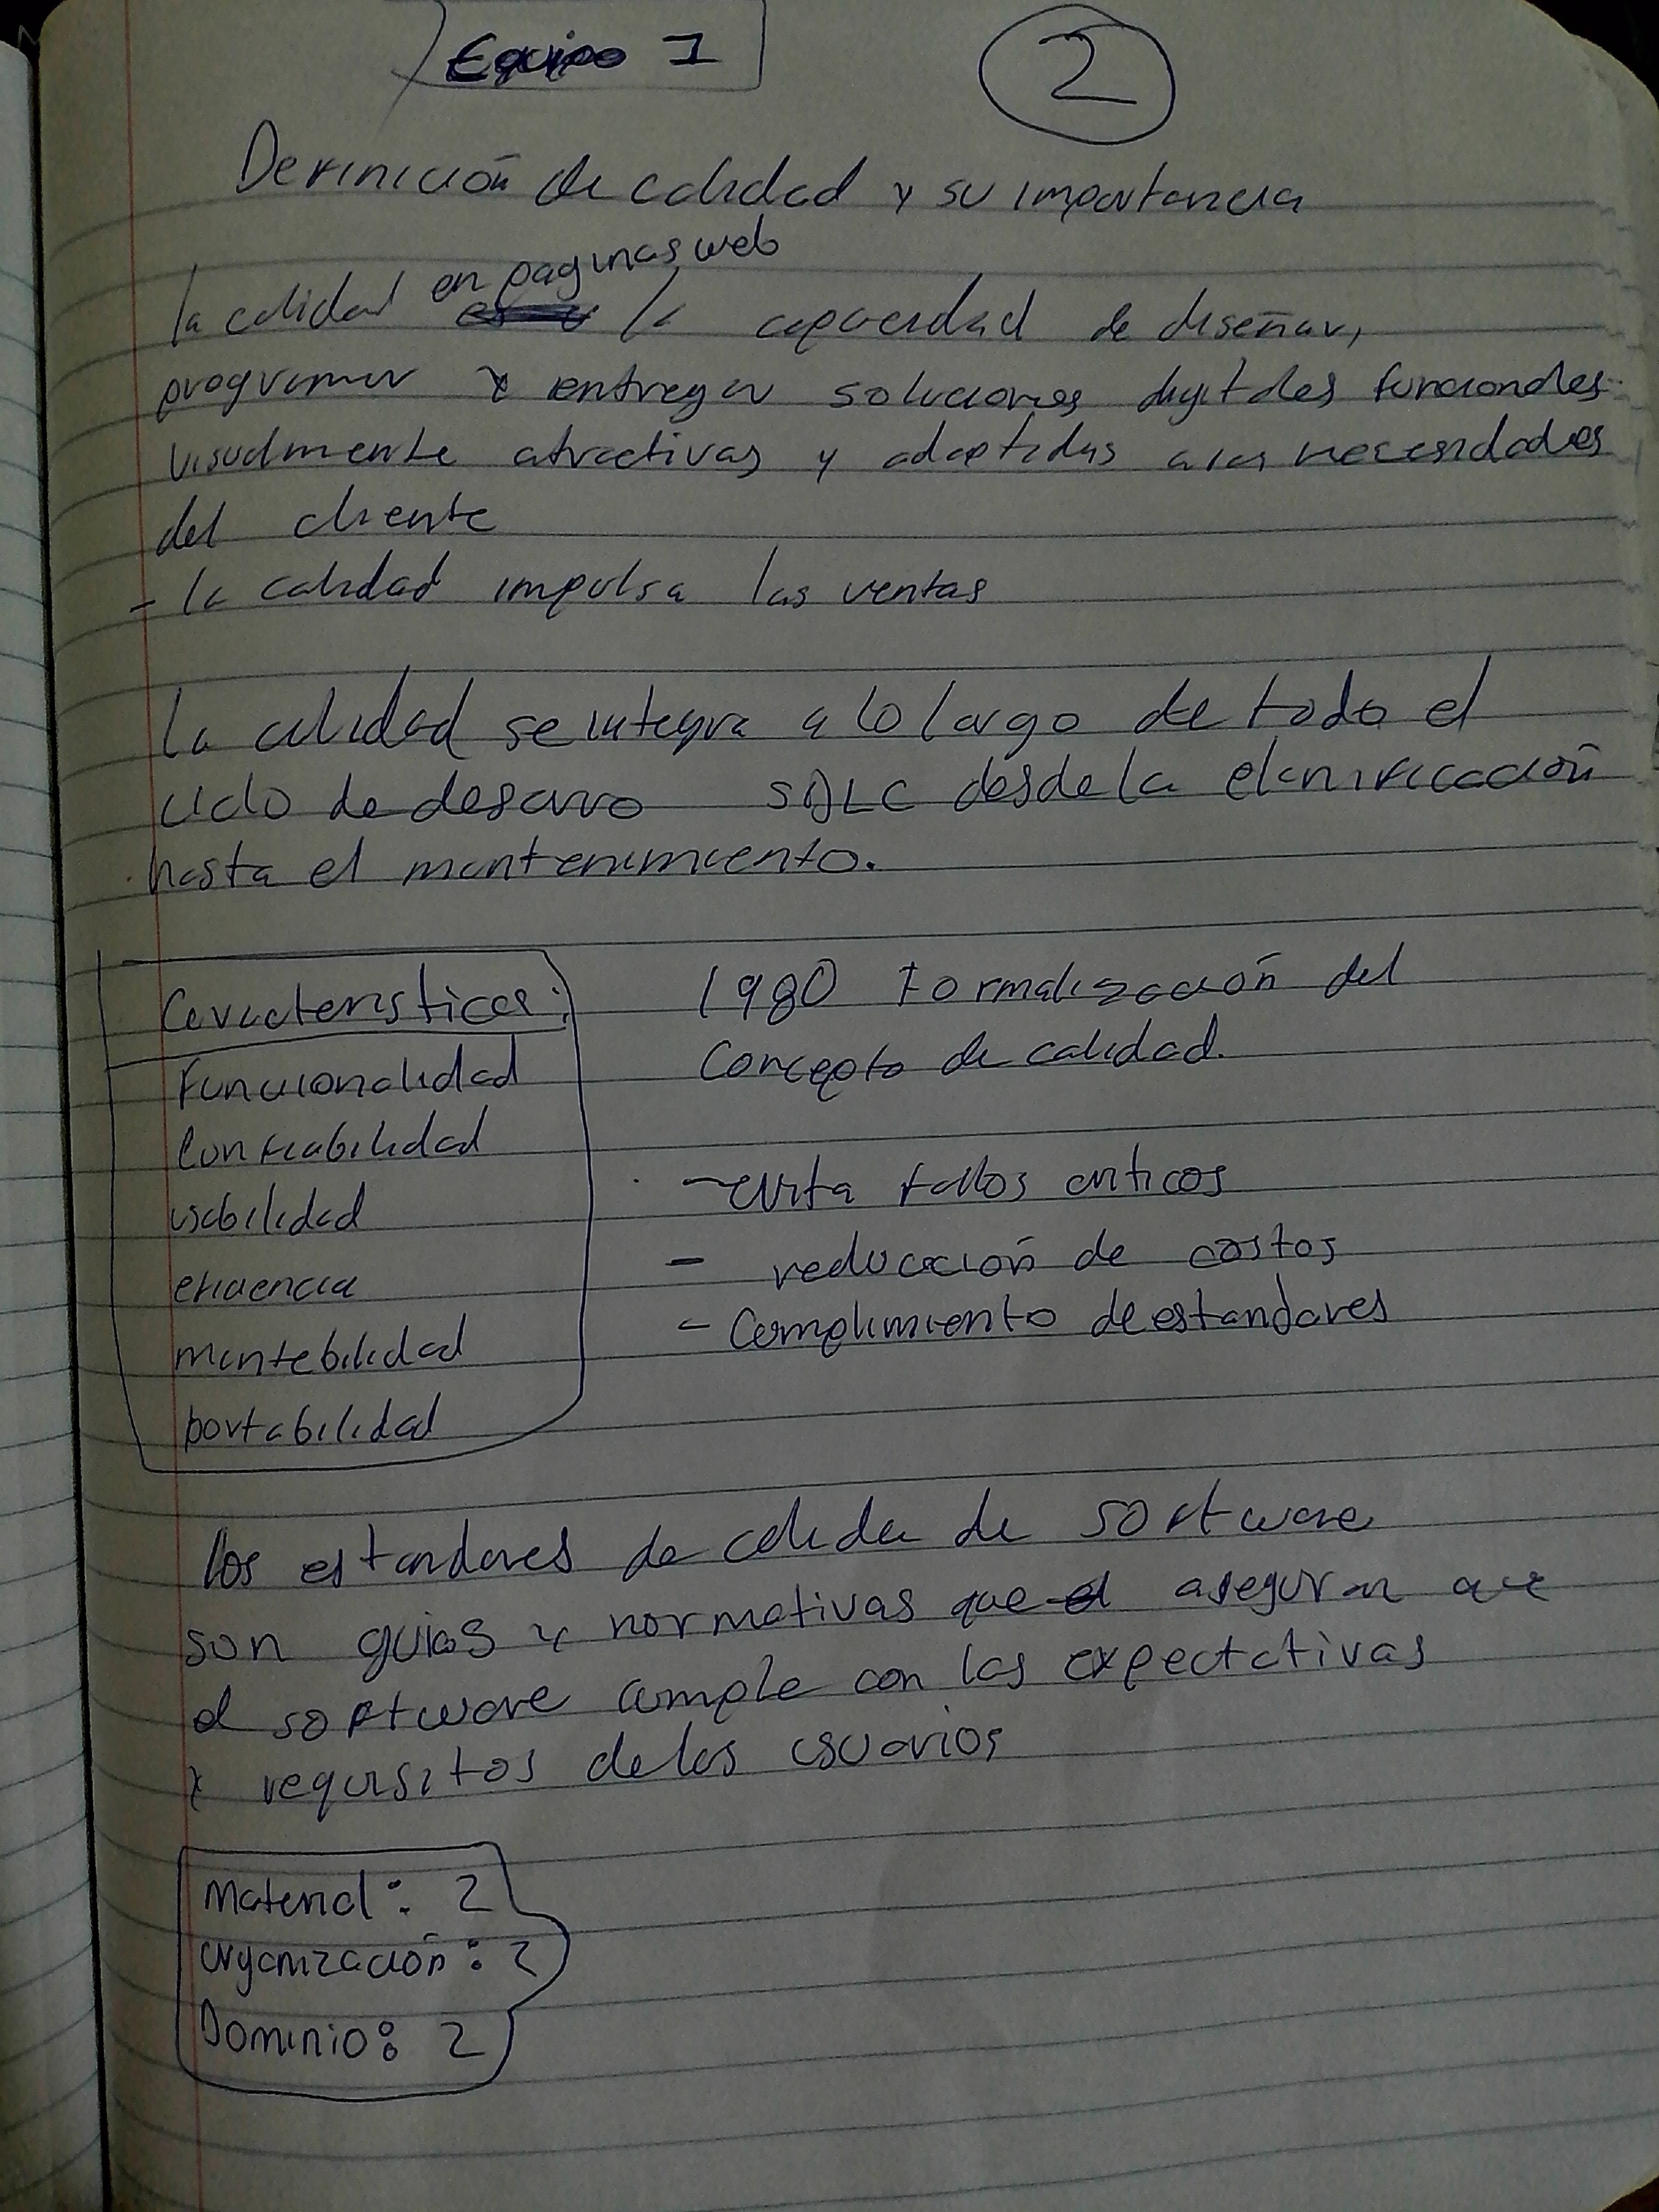 Equipo 1
2
Definición de calidad y su importancia
en paginas web
la calidad la capacidad de diseñar,
programar y entregar soluciones digitales funcionales
visualmente atractivas y adaptadas a las necesidades
del cliente
- la calidad impulsa las ventas
La calidad se integra a lo largo de todo el
ciclo de desarro SDLC desde la planificación
hasta el mantenimiento.
Caracteristicas:
Funcionalidad
Confiabilidad
usabilidad
eficiencia
mantebilidad
portabilidad
1980 Formalización del
Concepto de calidad.
- evita fallos criticos
- reducción de costos
- Cumplimiento de estandares
los estandares de calida de software
son guias y normativas que aseguran que
el software cumple con las expectativas
y requisitos de los usuarios
Material: 2
organización: 2
Dominio: 2